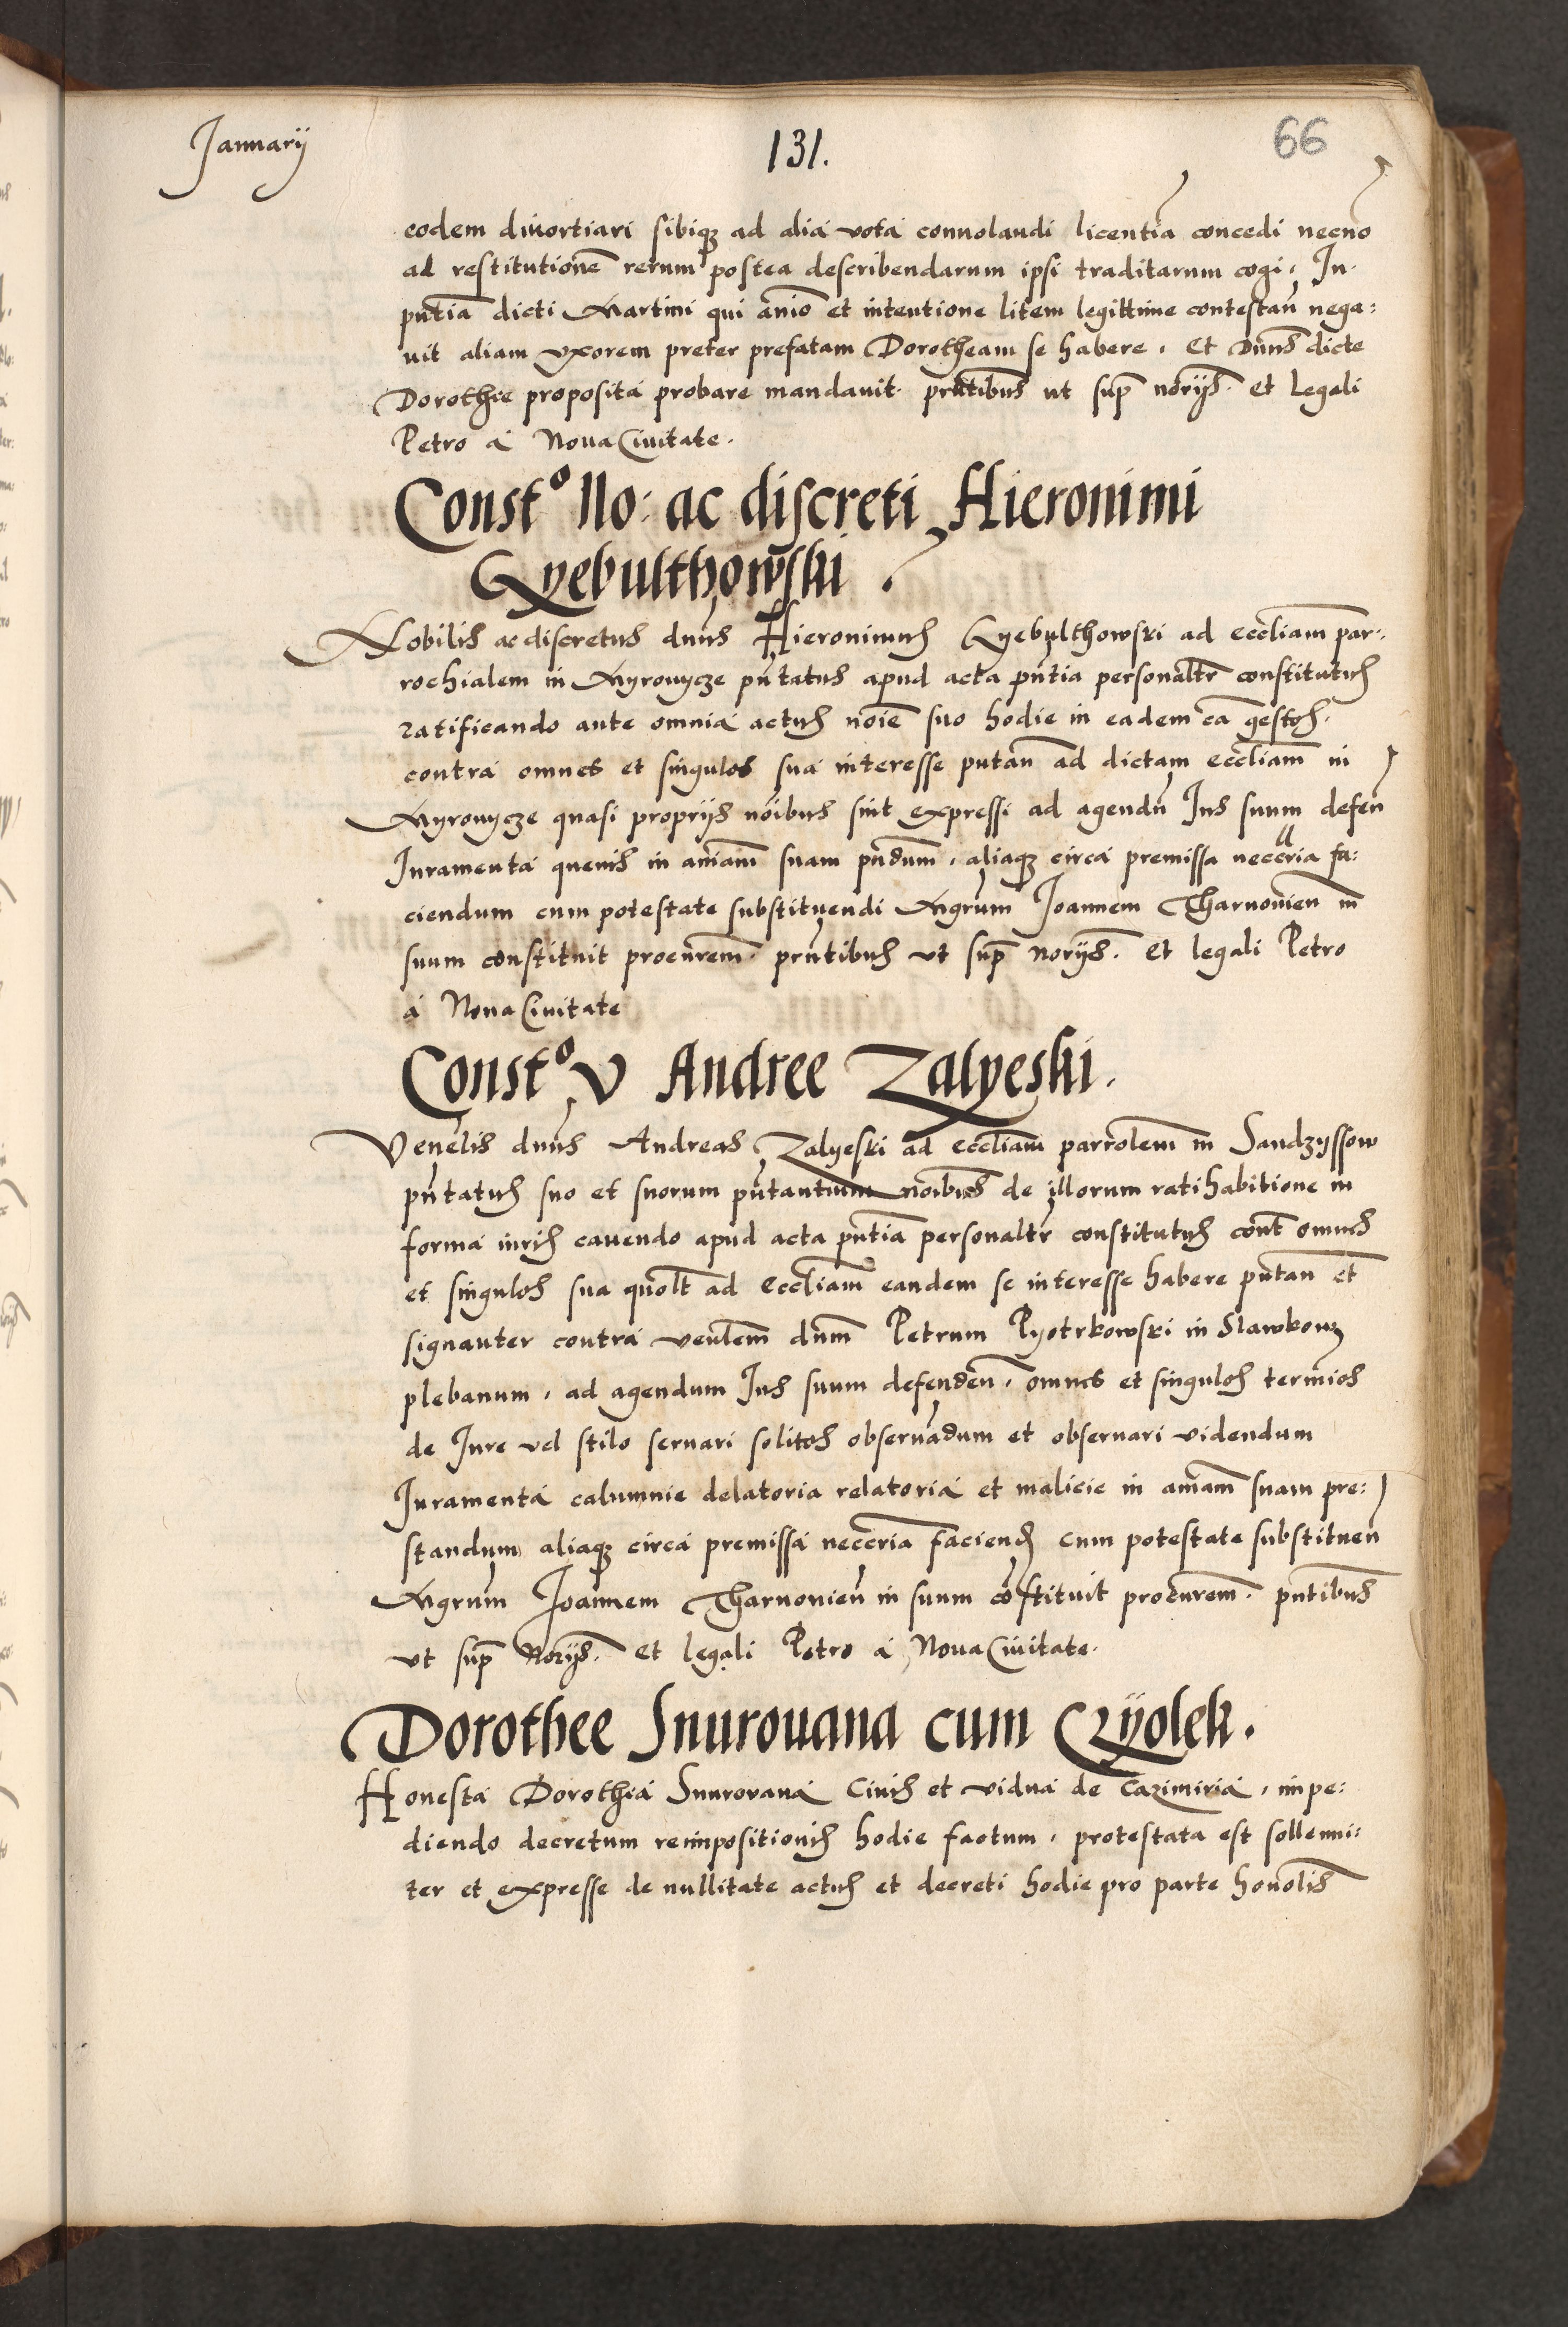 Januarij
131.
66
eodem diuortiari sibiq3 ad alia vota conuolandi licentiā concedi necnō
ad restitutionē rerum postea describendarum ipsi traditarum cogi. In
pñtia dicti Martini qui anīo et intentione litem legittime contestañ nega:
uit aliam vxorem preter prefatam Dorotheam se habere. Et Dnūs dicte
Dorothee proposita probare mandauit. prñtibus ut sup̄ norijs. Et legali
Petro a NouaCiuitate.
Const⁰ No: ac discreti Hieronimi
Gyebulthowski.
Nobilis ac discretus dnūs Hieronimus Gyebulthowski ad eccl̄iam par-
rochialem in Myronycze pñtatus apud acta pñtia personal̄tr constitutus
ratificando ante omnia actus noīe suo hodie in eadem cā gestos.
contra omnes et singulos sua interesse putañ ad dictam eccl̄iam in
Myronycze quasi proprijs noībus sint expressi ad agendū Jus suum defeñ
Juramenta queuis in aniam̄ suam pñdum̄. aliaq3 circa premissa neccēria fa:
ciendum cum potestate substituendi Mgrūm Joannem Tharnouieñ in
suum constituit procurem̄. prñtibus vt sup̄ norijs. Et legali Petro
a NouaCiuitate
Const⁰ V Andree Zalyeski.
Venēlis dnūs Andreas Zalyeski ad eccl̄iam parrolem̄ in Sandzyssow
pñtatus suo et suorum pñtantium noībus de illorum ratihabitione in
forma iuris cauendo apud acta pñtia personal̄tr constitutus cont̄ omnes
et singulos sua quol̄t ad Eccl̄iam eandem se interesse habere putañ et
signanter contra venlem̄ dnm̄ Petrum Pyotrkowski in Slawkow
plebanum. ad agendum Jus suum defendeñ. omnes et singulos termīos
de Jure vel stilo seruari solitos obseruādum et obseruari videndum
Juramenta calumnie delatoria relatoria et malicie in aniam̄ suam pre:
standum aliaq3 circa premissa neccēria faciend̄ cum potestate substitueñ
Mgrūm Joannem Tharnouieñ in suum cōstituit procurem̄. pñtibus
vt sup̄ Norijs. Et legali Petro a NouaCiuitate.
Dorothee Snurouana cum Czÿolek.
Honesta Dorothea Snurovana Ciuis et vidua de Cazimiria. impe:
diendo decretum reimpositionis hodie factum. protestata est sollemni:
ter et expresse de nullitate actus et decreti hodie pro parte honol̄is